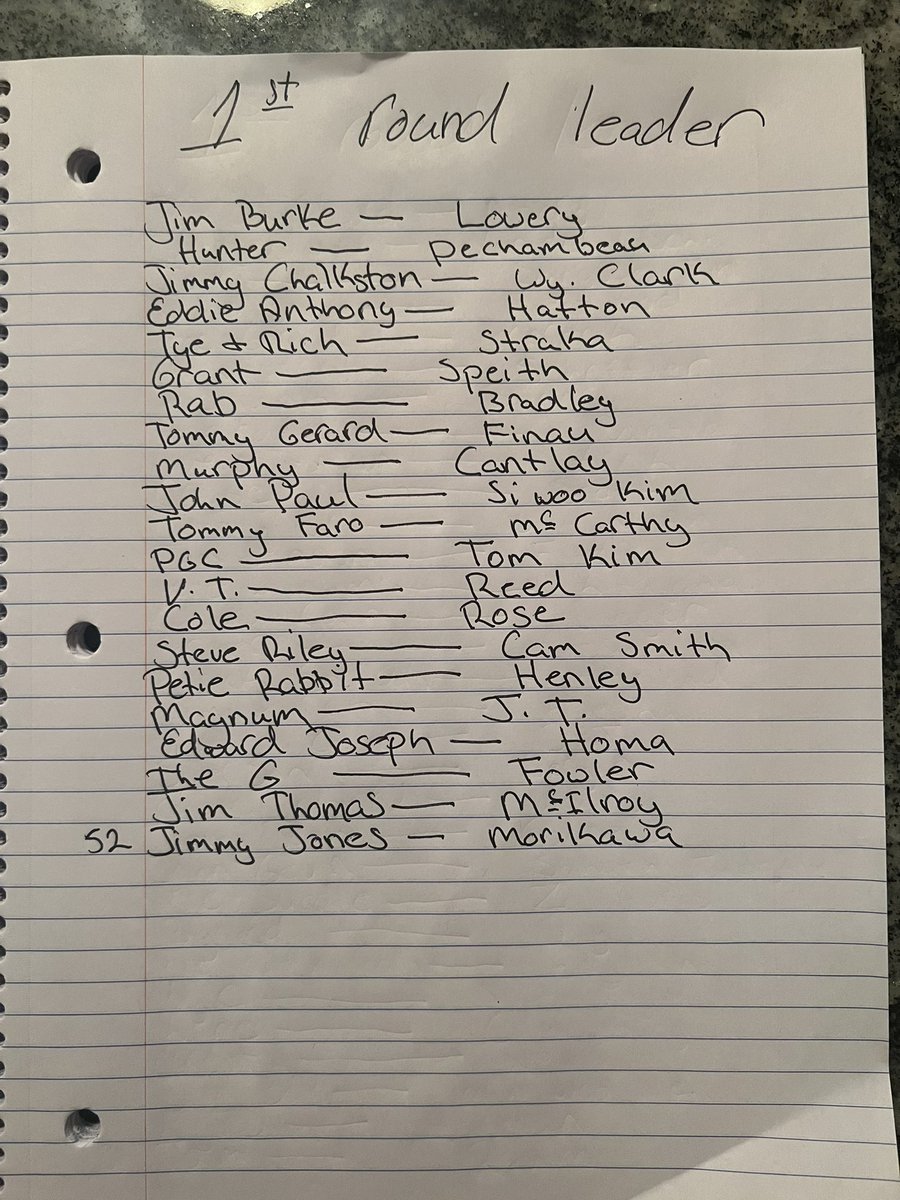 1st round leader
Jim Burke — Lowery
Hunter — Dechambeau
Jimmy Chalkston — Wy. Clark
Eddie Anthony — Hatton
Tye & Rich — Straka
Grant — Speith
Rab — Bradley
Tommy Gerard — Finau
Murphy — Cantlay
John Paul — Si woo Kim
Tommy Faro — McCarthy
PGC — Tom Kim
V.T. — Reed
Cole — Rose
Steve Riley — Cam Smith
Petie Rabbit — Henley
Magnum — J.T.
Edward Joseph — Homa
The G — Fowler
Jim Thomas — McIlroy
52 Jimmy Jones — Morikawa